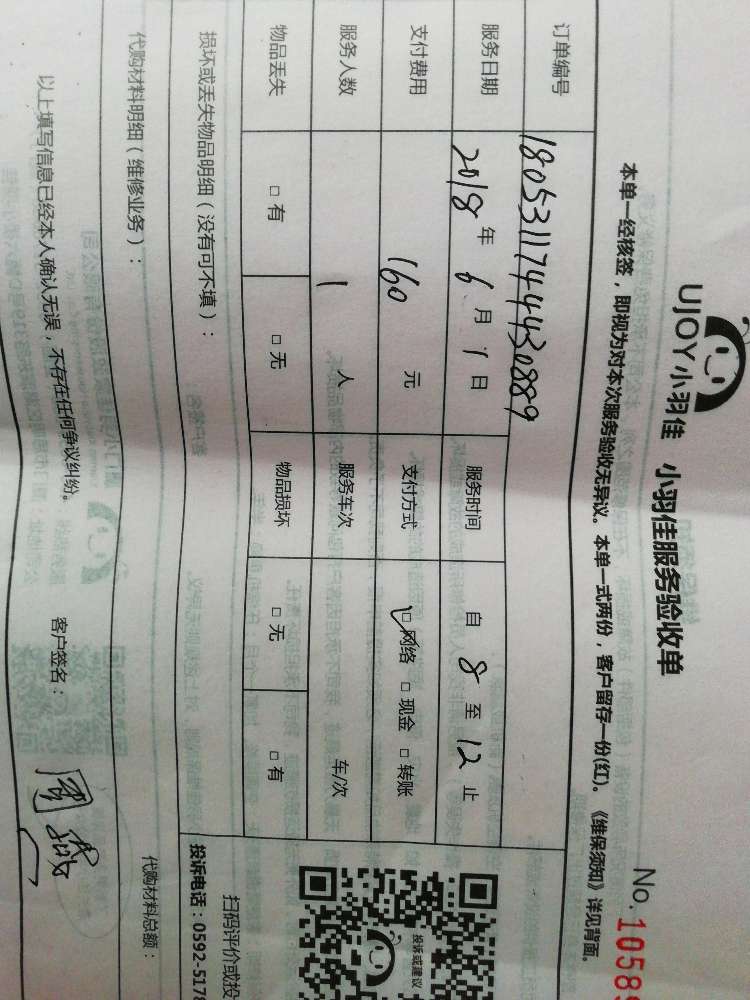 UJOY小羽佳 小羽佳服务验收单
No. 1058
本单一经核签，即视为对本次服务验收无异议。本单一式两份，客户留存一份(红)。《维保须知》详见背面。
订单编号 180531174444430889
服务日期 2018 年 6 月 1 日 服务时间 自 8 至 12 止
支付费用 160 元 支付方式 ☑网络 □现金 □转账
服务人数 1 人 服务车次 车/次
物品丢失 □有 □无 物品损坏 □无 □有
投诉或建议
损坏或丢失物品明细（没有可不填）：
扫码评价或投
投诉电话：0592-5178
代购材料明细（维修业务）： 代购材料总额：
以上填写信息已经本人确认无误，不存在任何争议纠纷。 客户签名：